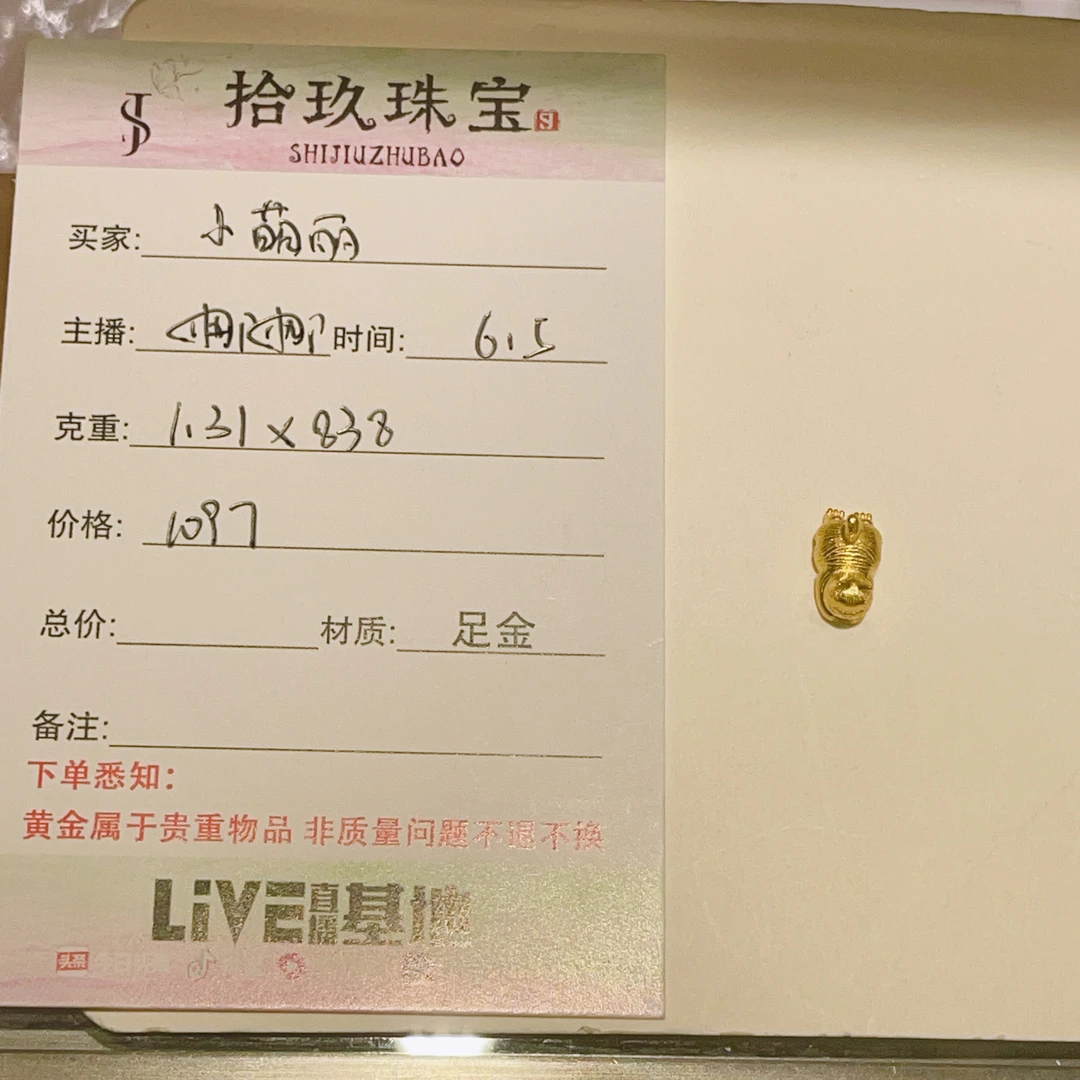 拾玖珠宝
SHIJIUZHUBAO
买家: 小萌丽
主播: 娜娜 时间: 6.5
克重: 1.31×838
价格: 1097
总价: 材质: 足金
备注:
下单悉知:
黄金属于贵重物品 非质量问题不退不换
LiVE直播基地
头条